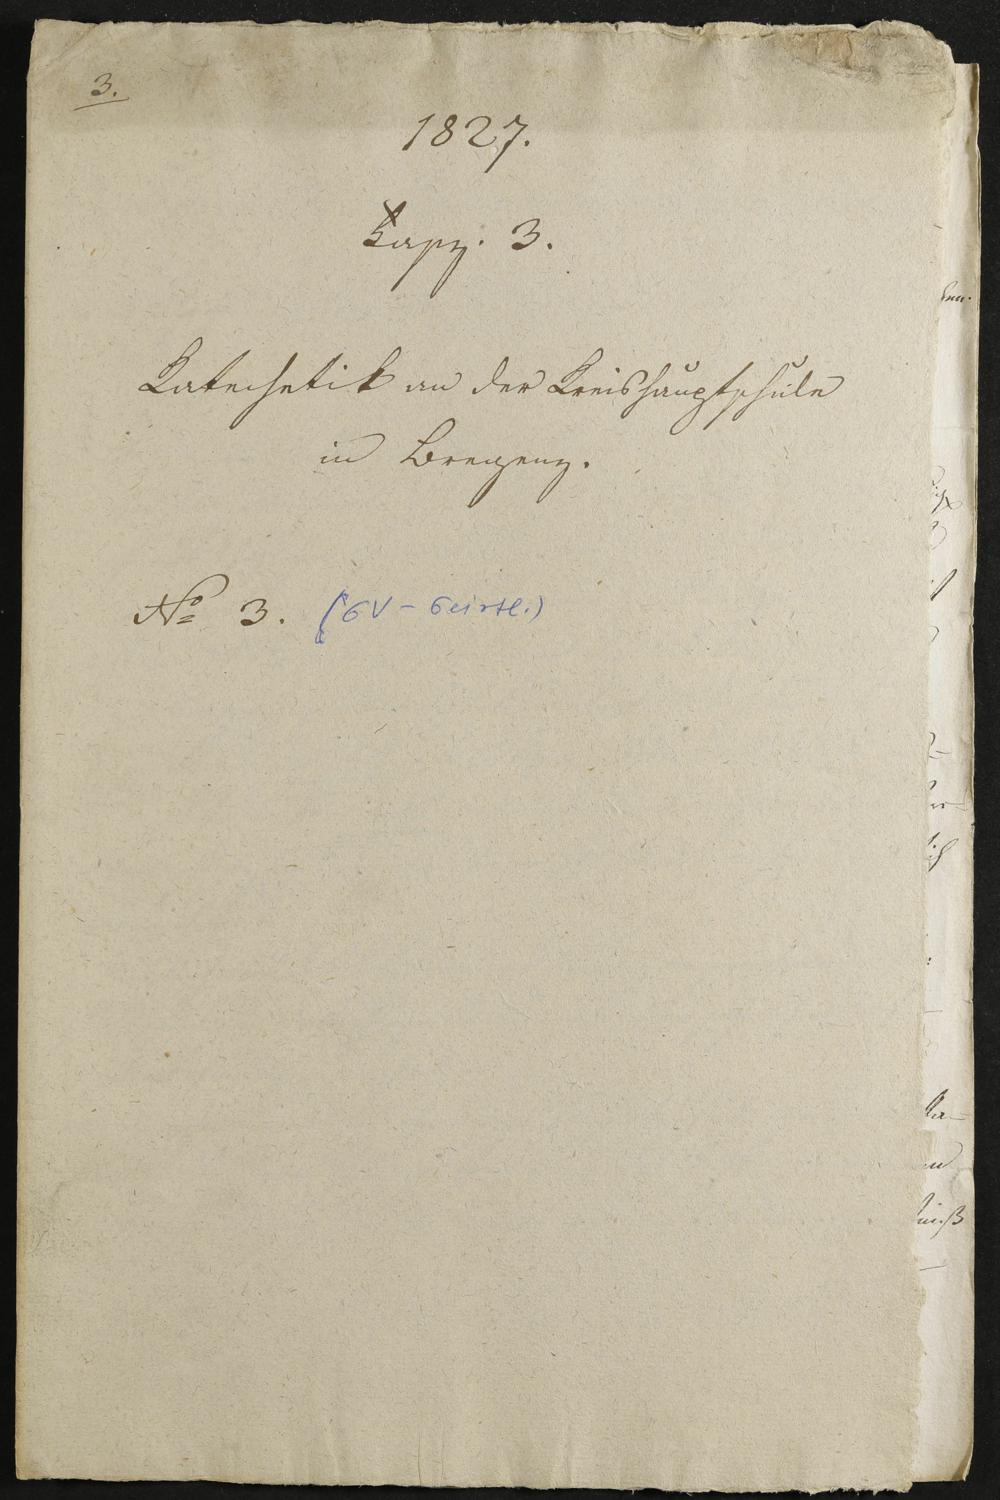 3.
1827.
Fasz. 3.
Katechetik an der Kreishauptschule
in Bregenz.
No 3. (GV - Geistl.)